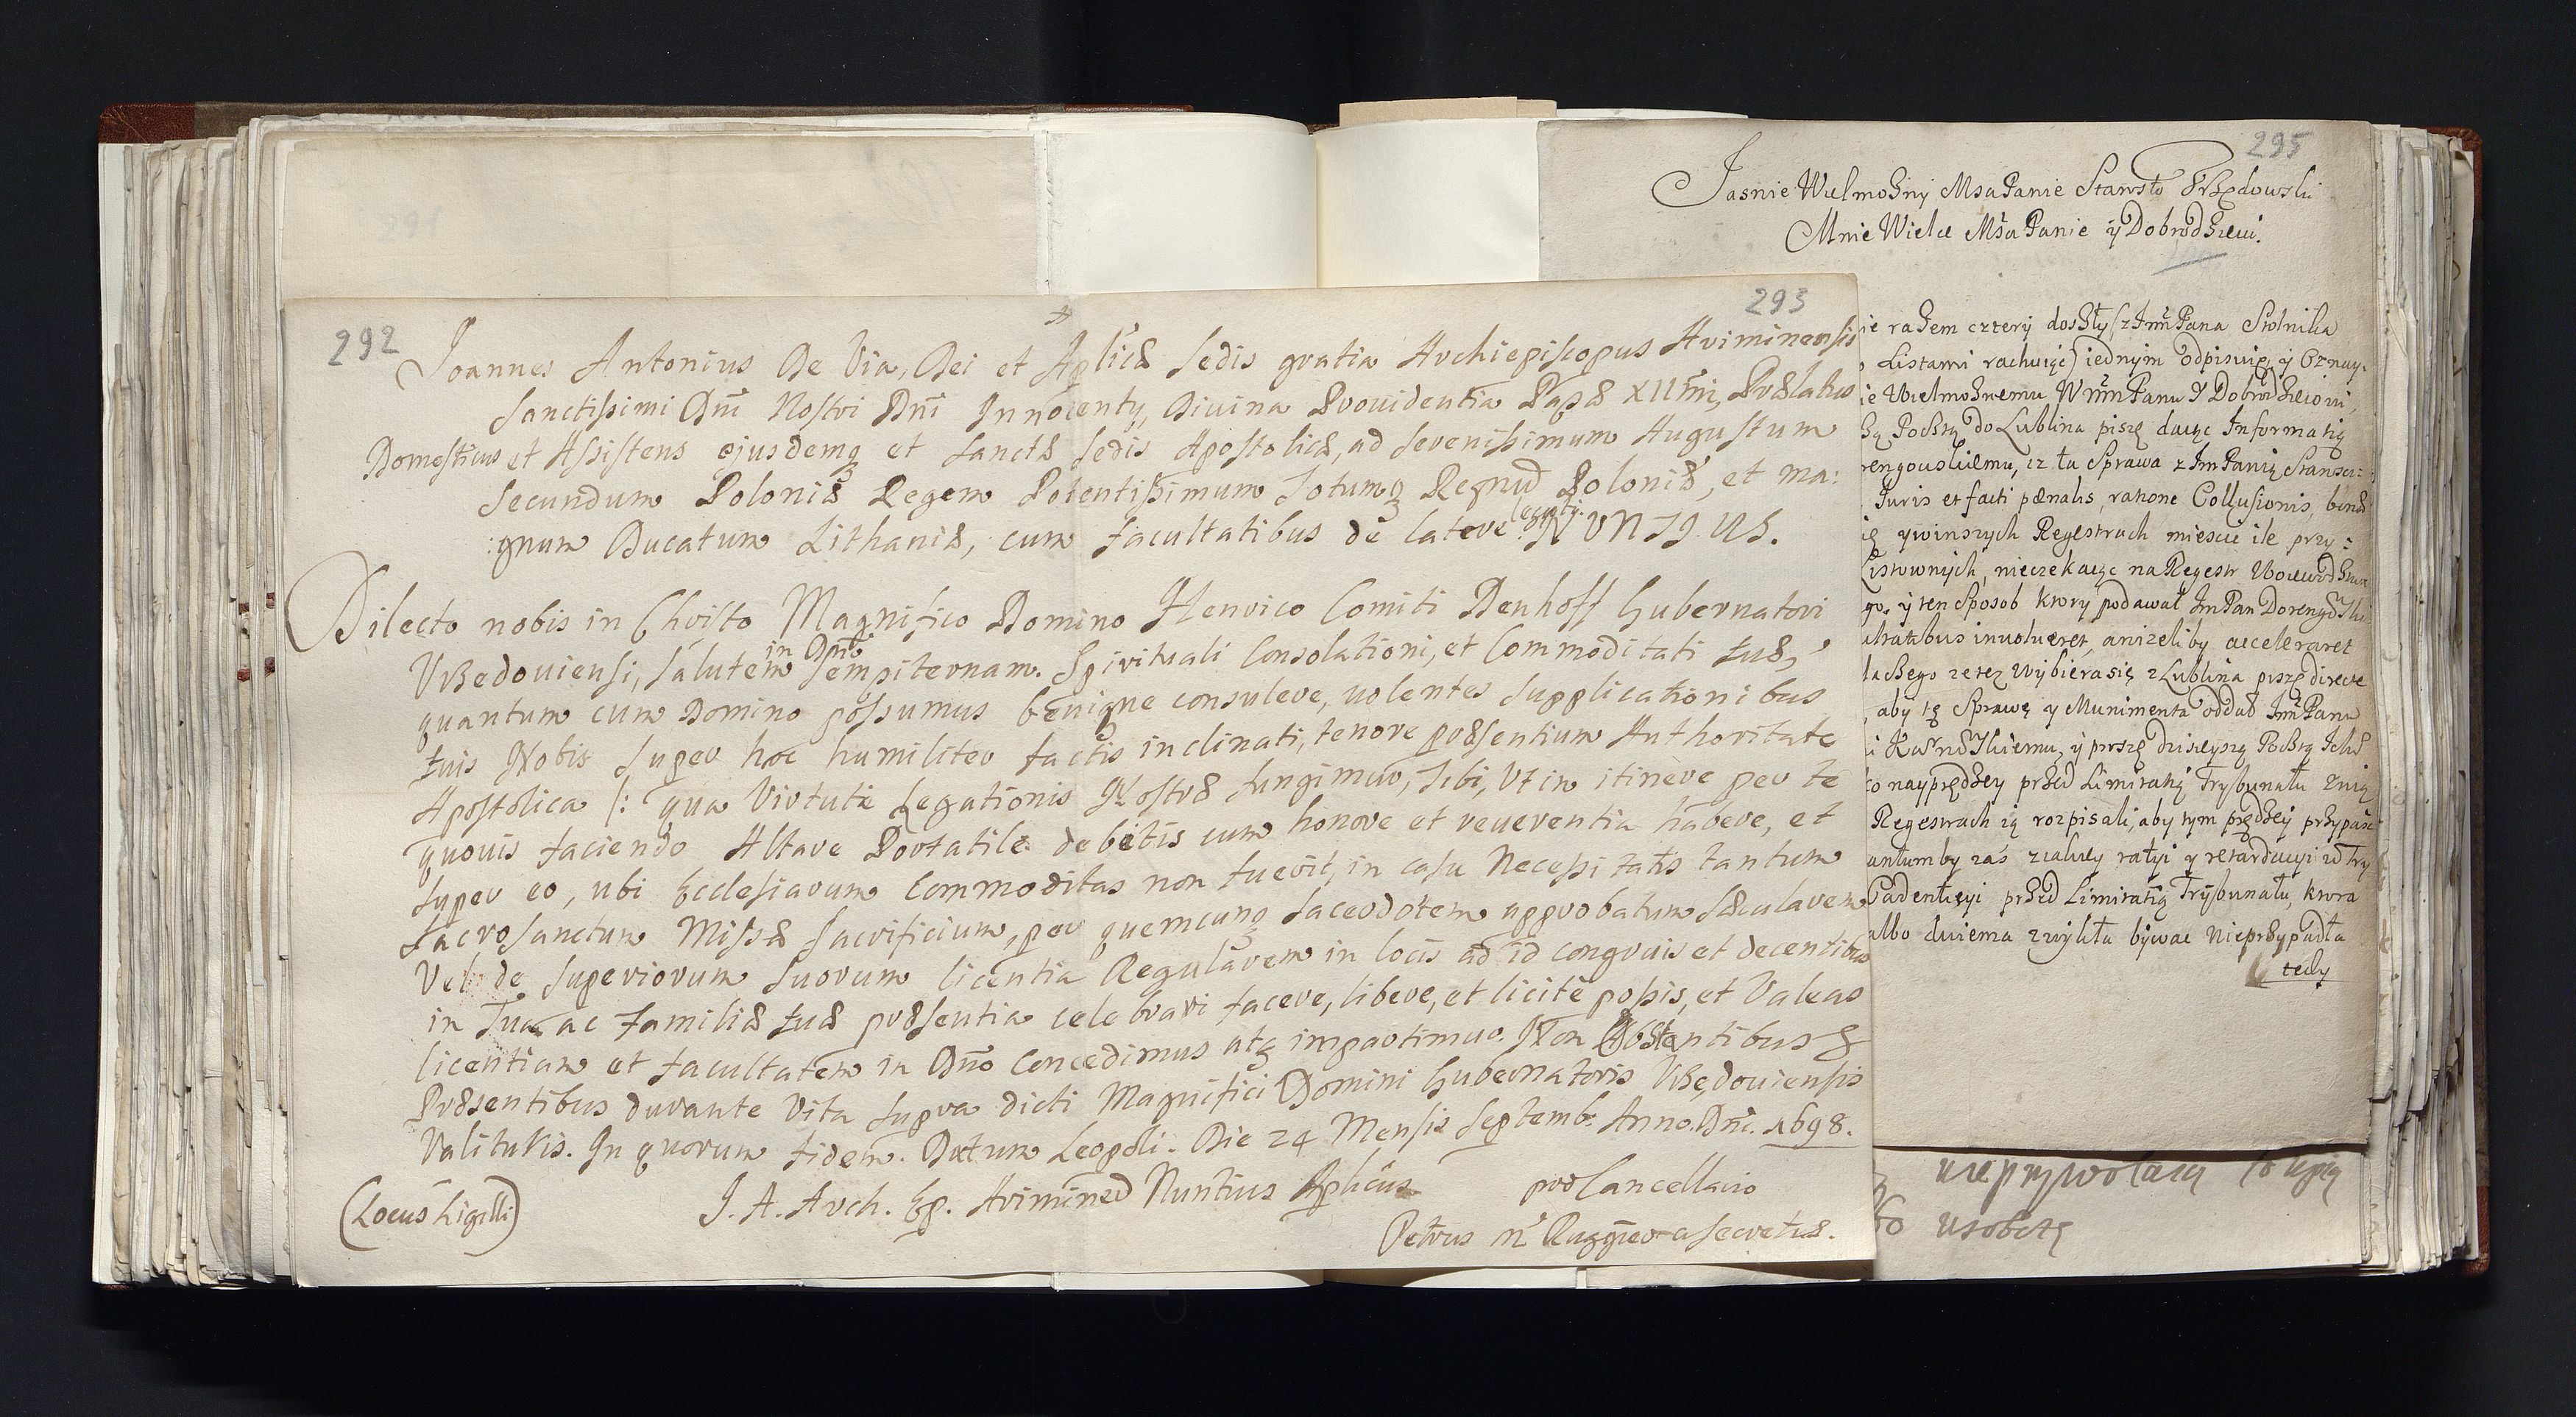 292
293
Joannes Antonius De Via, Dei et Aplicæ Sedis gratia Archiepiscopus Ariminensis
Sanctissimi Dni Nostri Dni Innocenty, Divina Providentia Papæ XIImi, Prælatus
Domesticus et Assistens ejusdemq et Sanctæ Sedis Apostolicæ, ad Serenissimum Augustum
Secundum Poloniæ Regem Potentissimum Totumq Regnu Poloniæ, et ma:
:gnum Ducatum Lithaniæ, cum facultatibus de latere legati NUNTIUS.
Dilecto nobis in Christo Magnifico Domino Henrico Comiti Denhoff Gubernatori
in Dno
Vrzedoviensi, Salutem Sempiternam. Spirituali Consolationi, et Commoditati tuæ,
quantum cum Domino possumus benigne consulere, volentes Supplicationibus
tuis Nobis Super hoc humiliter factis inclinati, tenore præsentium Authoritate
Apostolica /: qua Virtute Legationis Nostræ fungimur, Tibi, Vt in itinere per te
quovis faciendo Altare Portatile debitis cum honore et reverentia habere, et
Super eo, ubi Ecclesiarum Commoditas non fuerit, in casu Necessitatis tantum
Sacrosanctum Missæ Sacrificium, per quemcunq Sacerdotem approbatum Sæcularem
Vel de Superiorum Suorum licentia Regularem in locis ad id congruis et decentibus
in Tua, ac Familiæ tuæ præsentia celebrari facere, libere, et licite possis, et Valeas
licentiam et facultatem in Dno Concedimus atq impartimur. Non Obstantibus &
Præsentibus durante Vita Supra dicti Magnifici Domini Gubernatoris Vrzędoviensis
Valituris. In quorum fidem. Datum Leopoli. Die 24 Mensis Septemb. Anno. Dni. 1698.
(Locus Sigilli)
J. A. Arch. Ep. Arimined Nuntius Aplicus
pro Cancellario
Petrus a Secretis.
295
Jasnie Wielmozny Msci Panie Starosto Vrzędowski
Mnie Wielce Msci Panie y Dobrodzieiu.
ie razem cztery doszły (z Jm Pana Stolnika
Listami rachuiąc) iednym odpisuię, y Oznay-
ie Wielmoznemu Wmm Panu y Dobrodzieiowi,
Pocztę do Lublina piszę daiąc Informatią
rengowskiemu, iz ta Sprawa z Jm Panią
Juris et facti pænalis, ratione Collusionis,
ię y winszych Regestrach miescie ile przy:
nieczekaiąc na Regestr
go. y ten Sposob ktory podawał Jm Pan
involveret, anizeliby acceleraret
zetez wybiera się z Lublina piszę directe
, aby tę Sprawę y Munimenta oddał Jm Panu
y proszę dzisieyszą Pocztą
co nayprędzey przed Limitatią Trybunału
Regestrach ią rozpisali, aby tym prędzey przypaść
antumby zaś y retardacyi w Try
przed Limitatią Trybunału, ktora
albo dwiema zwykła bywac Nieprzypadła
tedy
usobotę